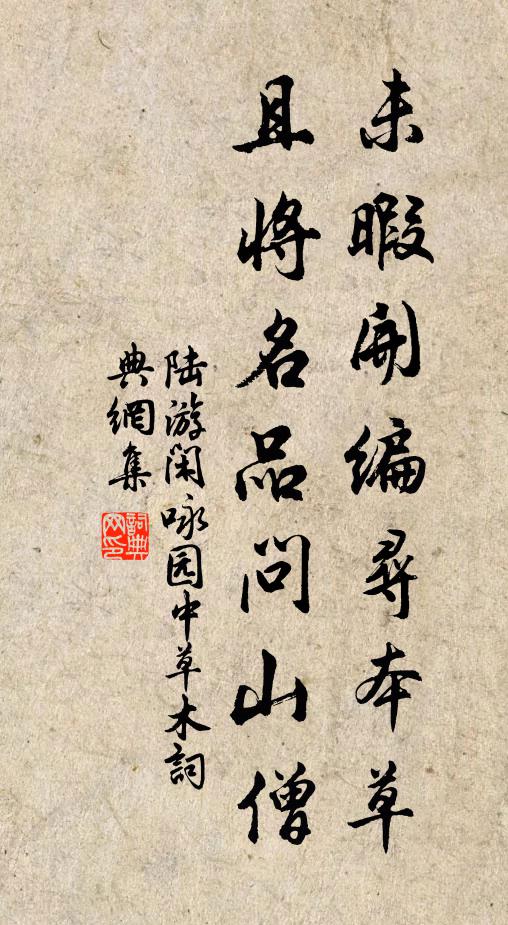 未暇開編尋本草
且将名品問山僧
陆游闲咏园中草木詞
典網集
詞典网印